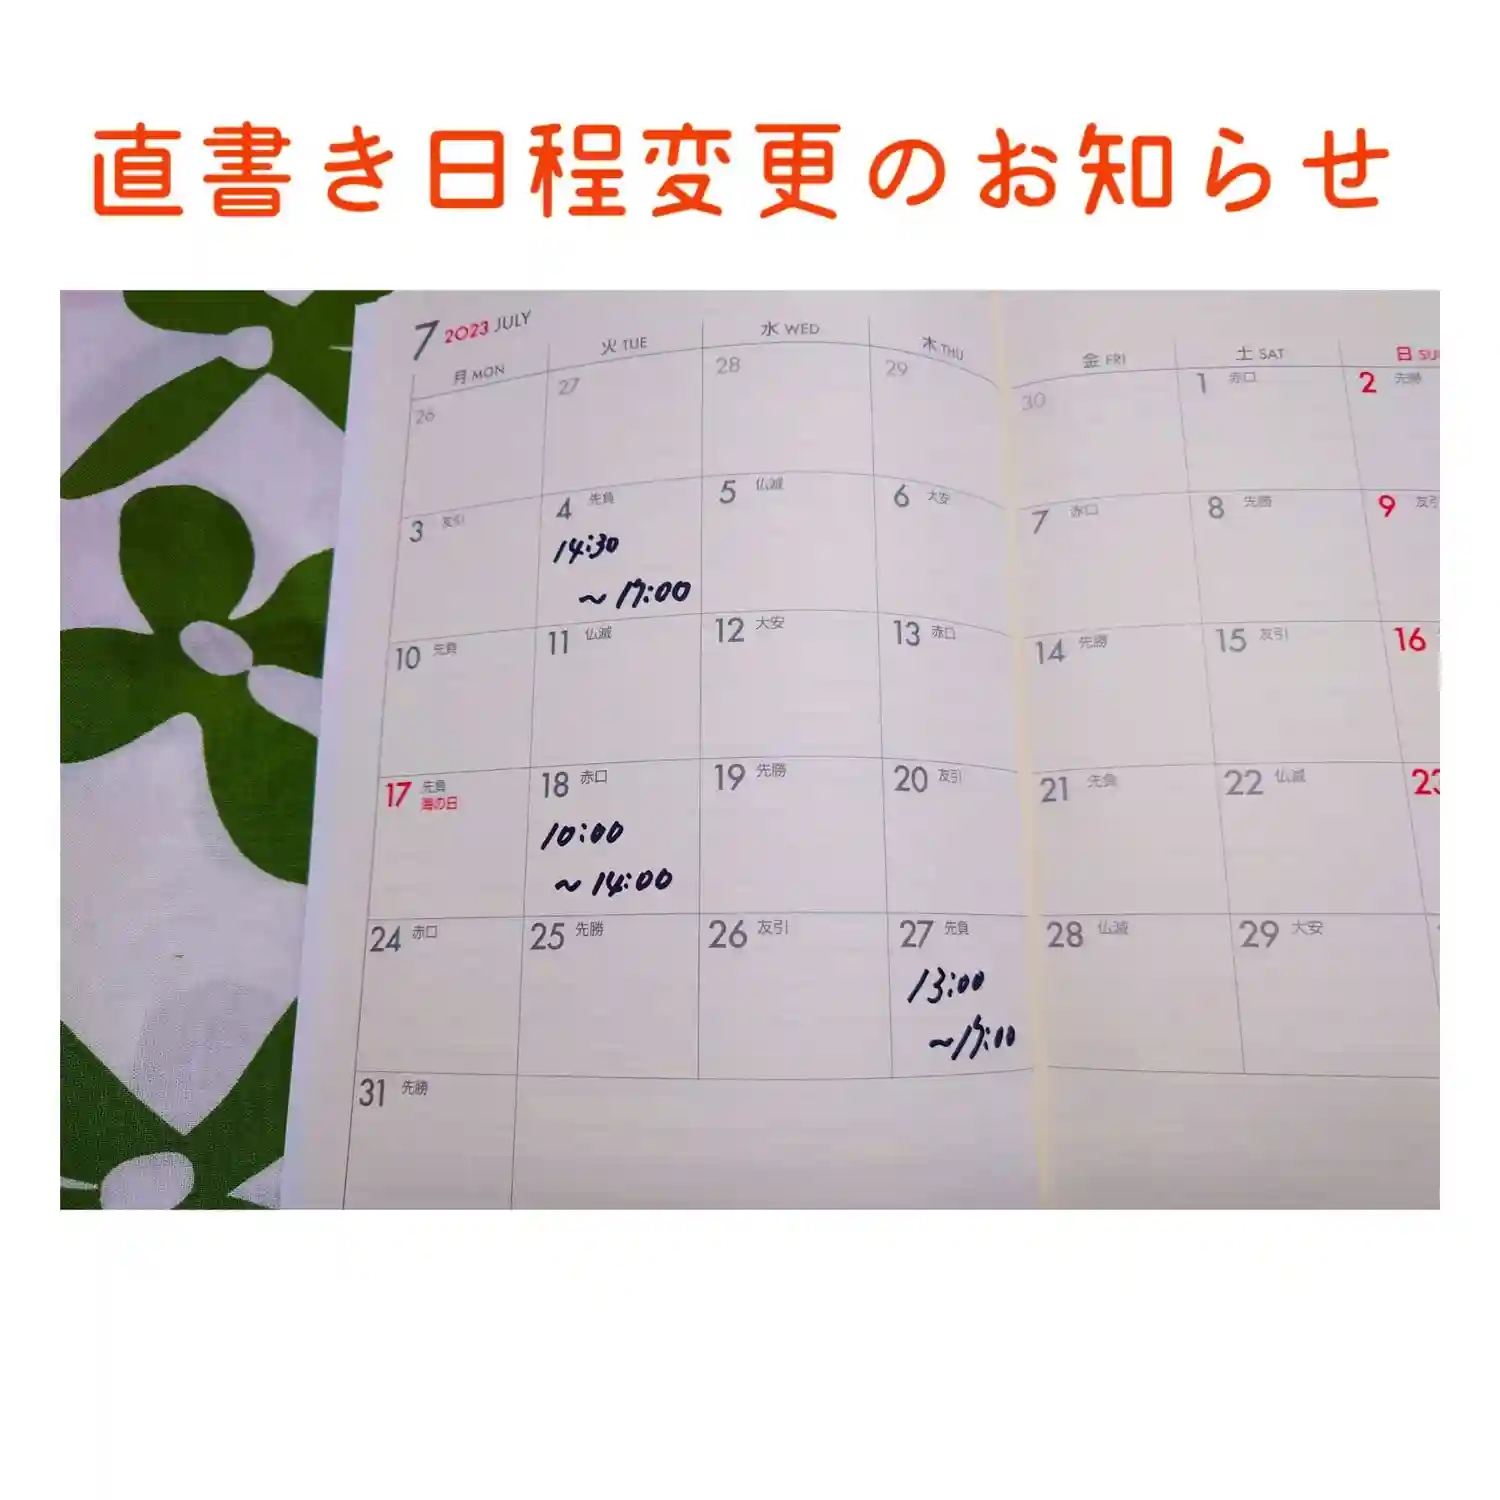 直書き日程変更のお知らせ
7 2023 JULY
月 MON 火 TUE 水 WED 木 THU 金 FRI 土 SAT 日
26 27 28 29 30 1 赤口 2 先勝
3 友引 4 先負 5 仏滅 6 大安 7 赤口 8 先勝 9 友引
14:30
～17:00
10 先負 11 仏滅 12 大安 13 赤口 14 先勝 15 友引 16
17 先負 18 赤口 19 先勝 20 友引 21 先負 22 仏滅 23
海の日
10:00
～14:00
24 赤口 25 先勝 26 友引 27 先負 28 仏滅 29 大安
13:00
～17:00
31 先勝